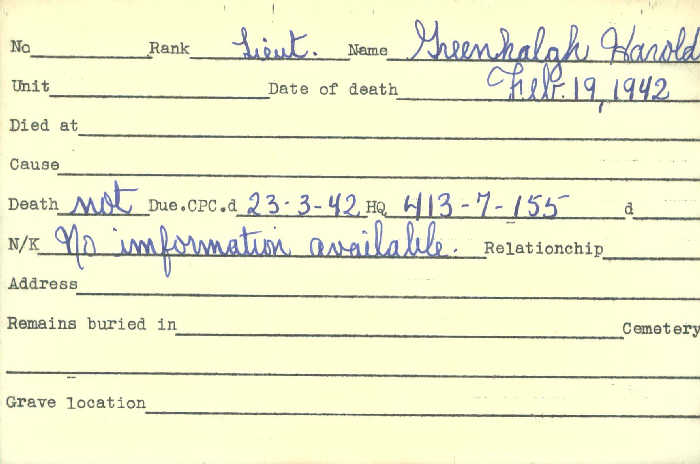 No Rank Lieut. Name Greenhalgh Harold
Unit Date of death Feb. 19, 1942
Died at
Cause
Death not Due.CPC.d 23-3-42 HQ 413-7-155 d
N/K No imformation available. Relationchip
Address
Remains buried in Cemetery
Grave location